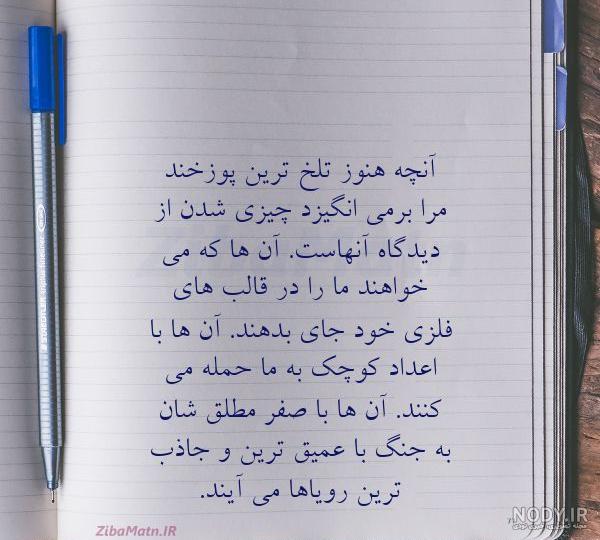 آنچه هنوز تلخ ترین پوزخند
مرا برمی انگیزد چیزی شدن از
دیدگاه آنهاست. آن ها که می
خواهند ما را در قالب های
فلزی خود جای بدهند. آن ها با
اعداد کوچک به ما حمله می
کنند. آن ها با صفر مطلق شان
به جنگ با عمیق ترین و جاذب
ترین رویاها می آیند.
ZibaMatn.IR
NODY.IR